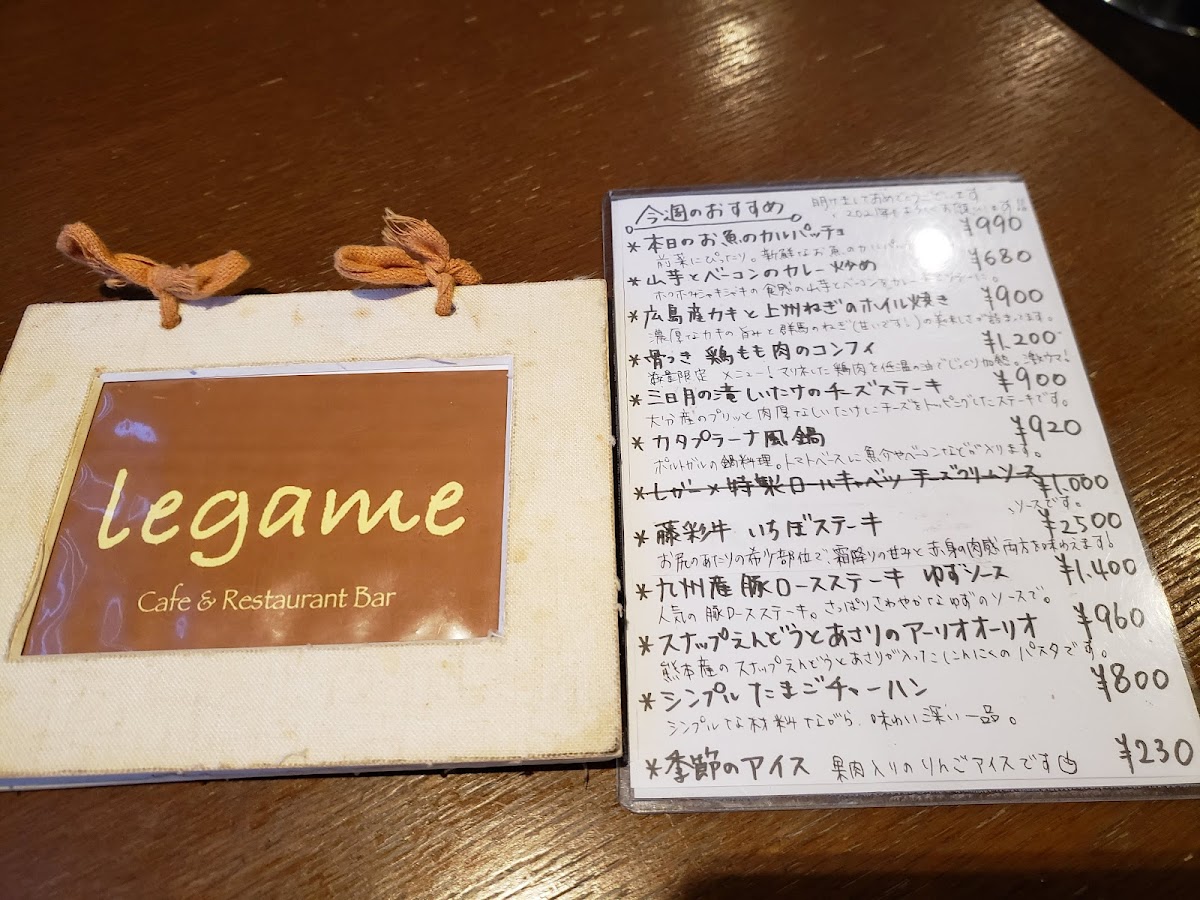 legame
Cafe & Restaurant Bar
今週のおすすめ
明けましておめでとうございます
2021年もよろしくお願いします
*本日のお魚のカルパッチョ ¥990
前菜にぴったり。新鮮なお魚のカルパッ
*山芋とベーコンのカレー炒め ¥680
ホクホクシャキシャキの食感の山芋とベーコンをカレー
*広島産カキと上州ねぎのホイル焼き ¥900
濃厚なカキの旨みと群馬のねぎ(甘いですし)の美味しさが詰まってます。
*骨つき 鶏もも肉のコンフィ ¥1.200
数量限定 メニュー!マリネした鶏肉を低温の油でじっくり加熱。激ウマ!
*三日月の滝 しいたけのチーズステーキ ¥900
大分産のプリッと肉厚なしいたけにチーズをトッピングしたステーキです。
*カタプラーナ風鍋 ¥920
ポルトガルの鍋料理。トマトベースに魚介やベーコンなどが入ります。
*レガーメ特製ロールキャベツ チーズクリームソース ¥1.000
ソースです。
*藤彩牛 いちぼステーキ ¥2500
お尻のあたりの希少部位で、霜降りの甘みと赤身の肉感両方を味わえます!
*九州産豚ロースステーキ ゆずソース ¥1.400
人気の豚ロースステーキ。さっぱりさわやかなゆずのソースで。
*スナップえんどうとあさりのアーリオオーリオ ¥960
熊本産のスナップえんどうとあさりが入ったにんにくのパスタです。
*シンプルたまごチャーハン ¥800
シンプルな材料ながら、味わい深い一品。
*季節のアイス 果肉入りのりんごアイスです ¥230